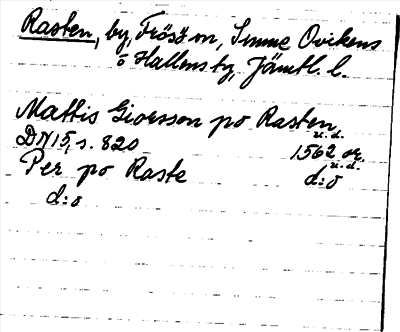 Rasten, by, Frösö sn, Sunne Ovikens
o Hallens tg, Jämtl. l.
Mattis Gioersson po Rasten
u.d.
DN 15, s. 820 1562 or.
Per po Raste u.d.
d:o d:o